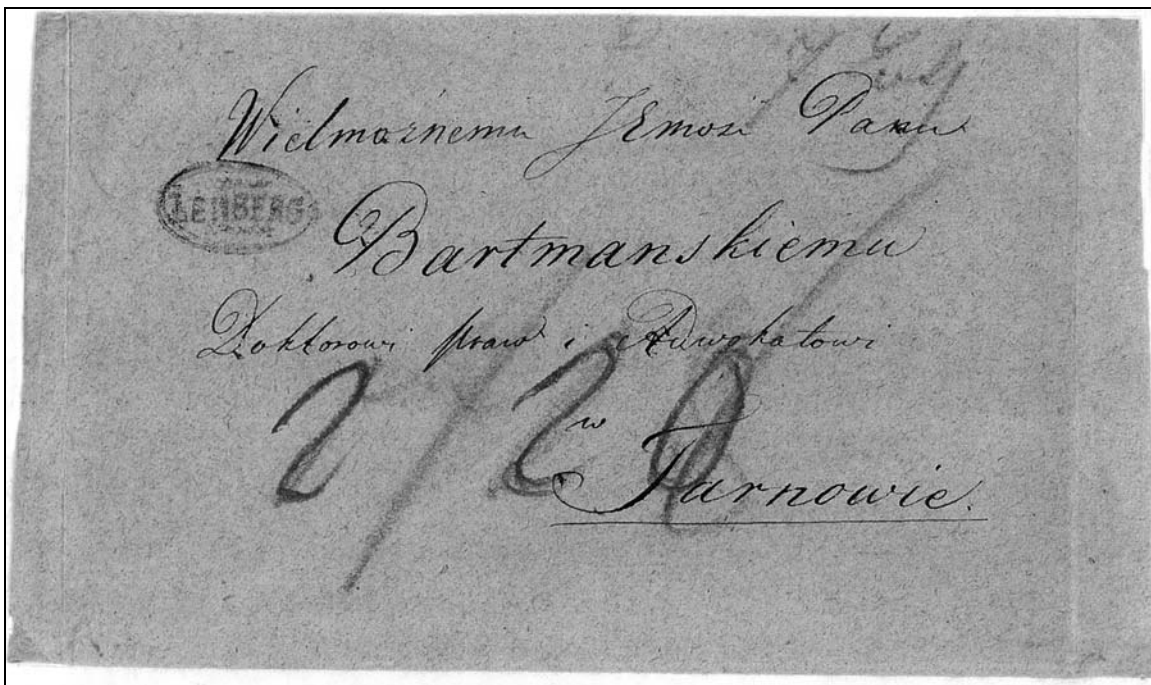 Wielmożnemu JEmość Panu
LEMBERG
Bartmanskiemu
Doktorowi praw i Adwokatowi
2/20
w
Tarnowie.